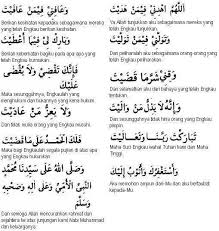 اللَّهُمَّ اهْدِنِيْ فِيْمَنْ هَدَيْتَ
Ya Allah tunjukkan aku sebagaimana mereka
yang telah Engkau tunjukkan
وَعَافِنِيْ فِيْمَنْ عَافَيْتَ
Berikan kesihatan kepadaku sebagaimana mereka
yang telah Engkau berikan kesihatan
وَتَوَلَّنِيْ فِيْمَنْ تَوَلَّيْتَ
Dan peliharalah aku sebagaimana orang yang
telah Engkau
وَبَارِكْ لِيْ فِيْمَا أَعْطَيْتَ
Berikan keberkatan bagiku pada apa-apa yang
telah Engkau
وَقِنِيْ شَرَّمَا قَضَيْتَ
Dan selamatkan aku dari
yang telah Engkau
فَإِنَّكَ تَقْضِيْ وَلاَ يُقْضَى
عَلَيْكَ
Maka sesungguhnya, Engkaulah yang
menghukum dan bukannya yang kena hukum
وَإِنَّهُ لاَ يَذِلُّ مَنْ وَالَيْتَ
hina orang yang Engkau
وَلاَ يَعِزُّ مَنْ عَادَيْتَ
Dan tidak mulia orang yang Engkau
تَبَارَكْتَ رَبَّنَا وَتَعَالَيْتَ
Maha Suci Engkau wahai Tuhan kami dan Maha
Tinggi
فَلَكَ الْحَمْدُ عَلَى مَا قَضَيْتَ
Maka bagi Engkaulah segala pujian di atas apa
yang Engkau hukumkan
وَأَسْتَغْفِرُكَ وَأَتُوْبُ إِلَيْكَ
Aku memohon ampun dari-Mu dan aku bertaubat
kepada-Mu
وَصَلَّى اللهُ عَلَى سَيِّدِنَا مُحَمَّدٍ
النَّبِيِّ الْأُمِّيِّ وَعَلَى آلِهِ وَصَحْبِهِ
وَسَلَّمَ
Dan semoga Allah mencurahkan rahmat dan
sejahtera ke atas junjungan kami Nabi Muhammad
dan keluarganya